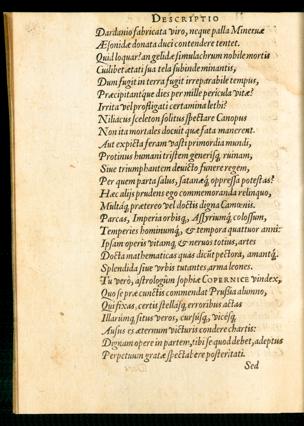 DESCRIPTIO
Dardanio fabricata viro, neque palla Mineruæ
Æsonidæ donata duci contendere tentet.
Quid loquar? an gelidæ simulachrum nobile mortis
Cuilibet ætati sua tela subinde minantis,
Dum fugit in terra fugit irreparabile tempus,
Præcipitantq́ue dies per mille pericula vitæ?
Irrita vel profligati certamina lethi?
Niliacus sceleton solitus spectare Canopus
Non ita mortales docuit quæ fata manerent.
Aut expicta feram vasti primordia mundi,
Protinus humani tristem generisq́, ruinam,
Siue triumphantem deuicto funere regem,
Per quem parta salus, satanæq́, oppressa potestas?
Hæc alijs prudens ego commemoranda relinquo,
Multaq́, prætereo vel doctis digna Camœnis.
Parcas, Imperia orbisq́, Assyriumq́, colossum,
Temperies hominumq́, & tempora quattuor anni:
Ipsam operis vitamq́, & neruos totius, artes
Docta mathematicas quas dicūt pectora, amantq́.
Splendida siue vrbis tutantes arma leones.
Tu verò, astrologūm sophiæ COPERNICE vindex,
Quo se præ cunctis commendat Prussia alumno,
Qui fixas, certis stellasq́, erroribus actas
Illarūmq́, situs veros, cursúsq́, vicésq́,
Ausus es æternum victuris condere chartis:
Dignam opere in partem, tibi se quod debet, adeptus
Perpetuum gratæ spectabere posteritati.
Sed